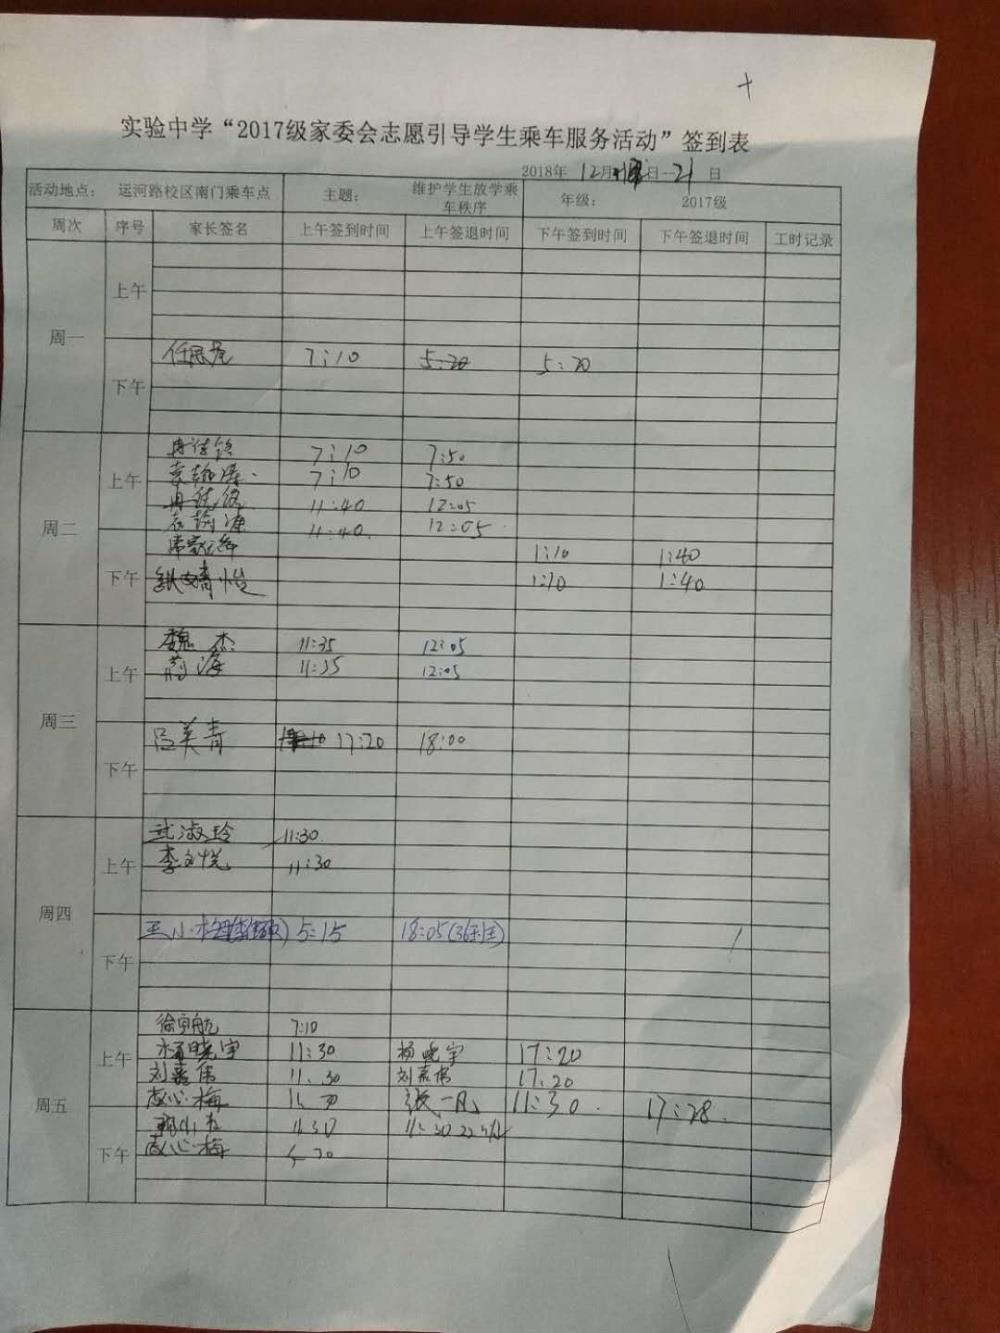 实验中学“2017级家委会志愿引导学生乘车服务活动”签到表
2018年 12月 日—21 日
活动地点： 运河路校区南门乘车点 主题： 维护学生放学乘车秩序 年级： 2017级
周次 序号 家长签名 上午签到时间 上午签退时间 下午签到时间 下午签退时间 工时记录
周一
上午
下午
7:10 5:20 5:20
周二
上午
7:10 7:50
7:10 7:50
11:40 12:05
11:40 12:05
下午
1:10 1:40
1:10 1:40
周三
上午
魏杰 11:35 12:05
11:35 12:05
下午
吕美青 17:20 18:00
周四
上午
武淑玲 11:30
李文悦 11:30
下午
王小 5:15 18:05
周五
上午
徐宇航 7:10
杨晓宇 11:30 杨晓宇 17:20
刘嘉伟 11.30 刘嘉伟 17.20
心梅 张一凡 11:30 17:28
下午
11:30
心梅